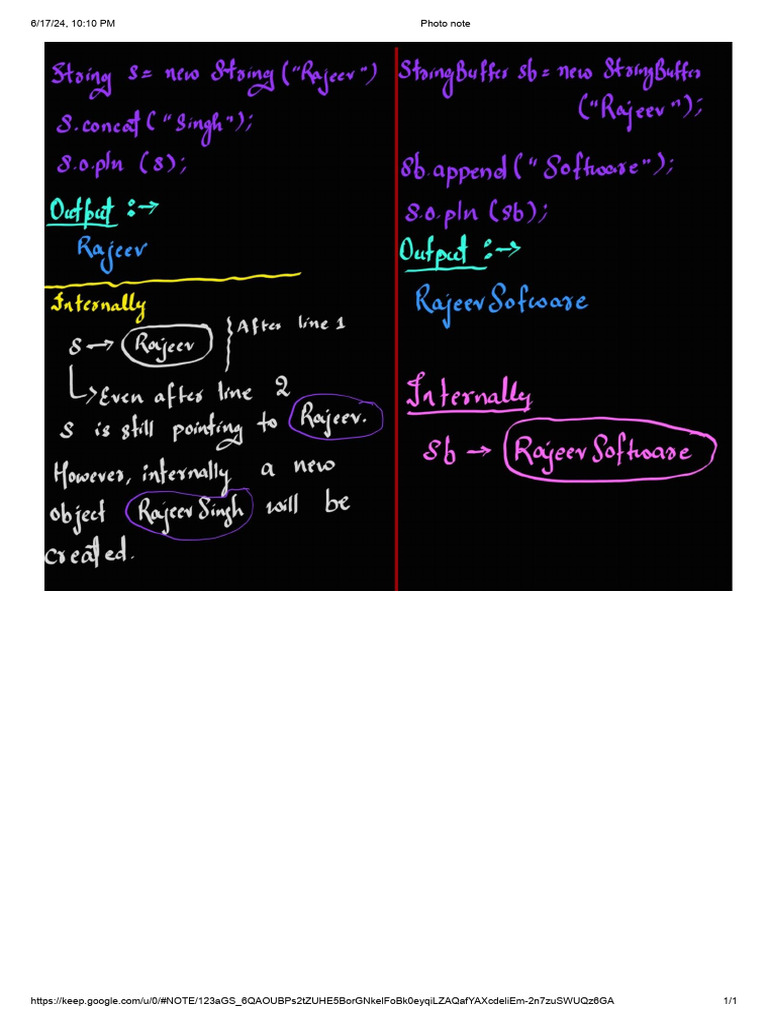 6/17/24, 10:10 PM
Photo note
String s = new String ("Rajeev")
s.concat ("Singh");
s.o.pln (s);
Output :→
Rajeev
Internally
s → Rajeev } After line 1
↳ Even after line 2
s is still pointing to Rajeev.
However, internally a new
object Rajeev Singh will be
created.
StringBuffer sb = new StringBuffer
("Rajeev");
sb.append ("Software");
s.o.pln (sb);
Output :→
Rajeev Sofware
Internally
sb → Rajeev Software
https://keep.google.com/u/0/#NOTE/123aGS_6QAOUBPs2tZUHE5BorGNkelFoBk0eyqiLZAQafYAXcdeliEm-2n7zuSWUQz6GA
1/1